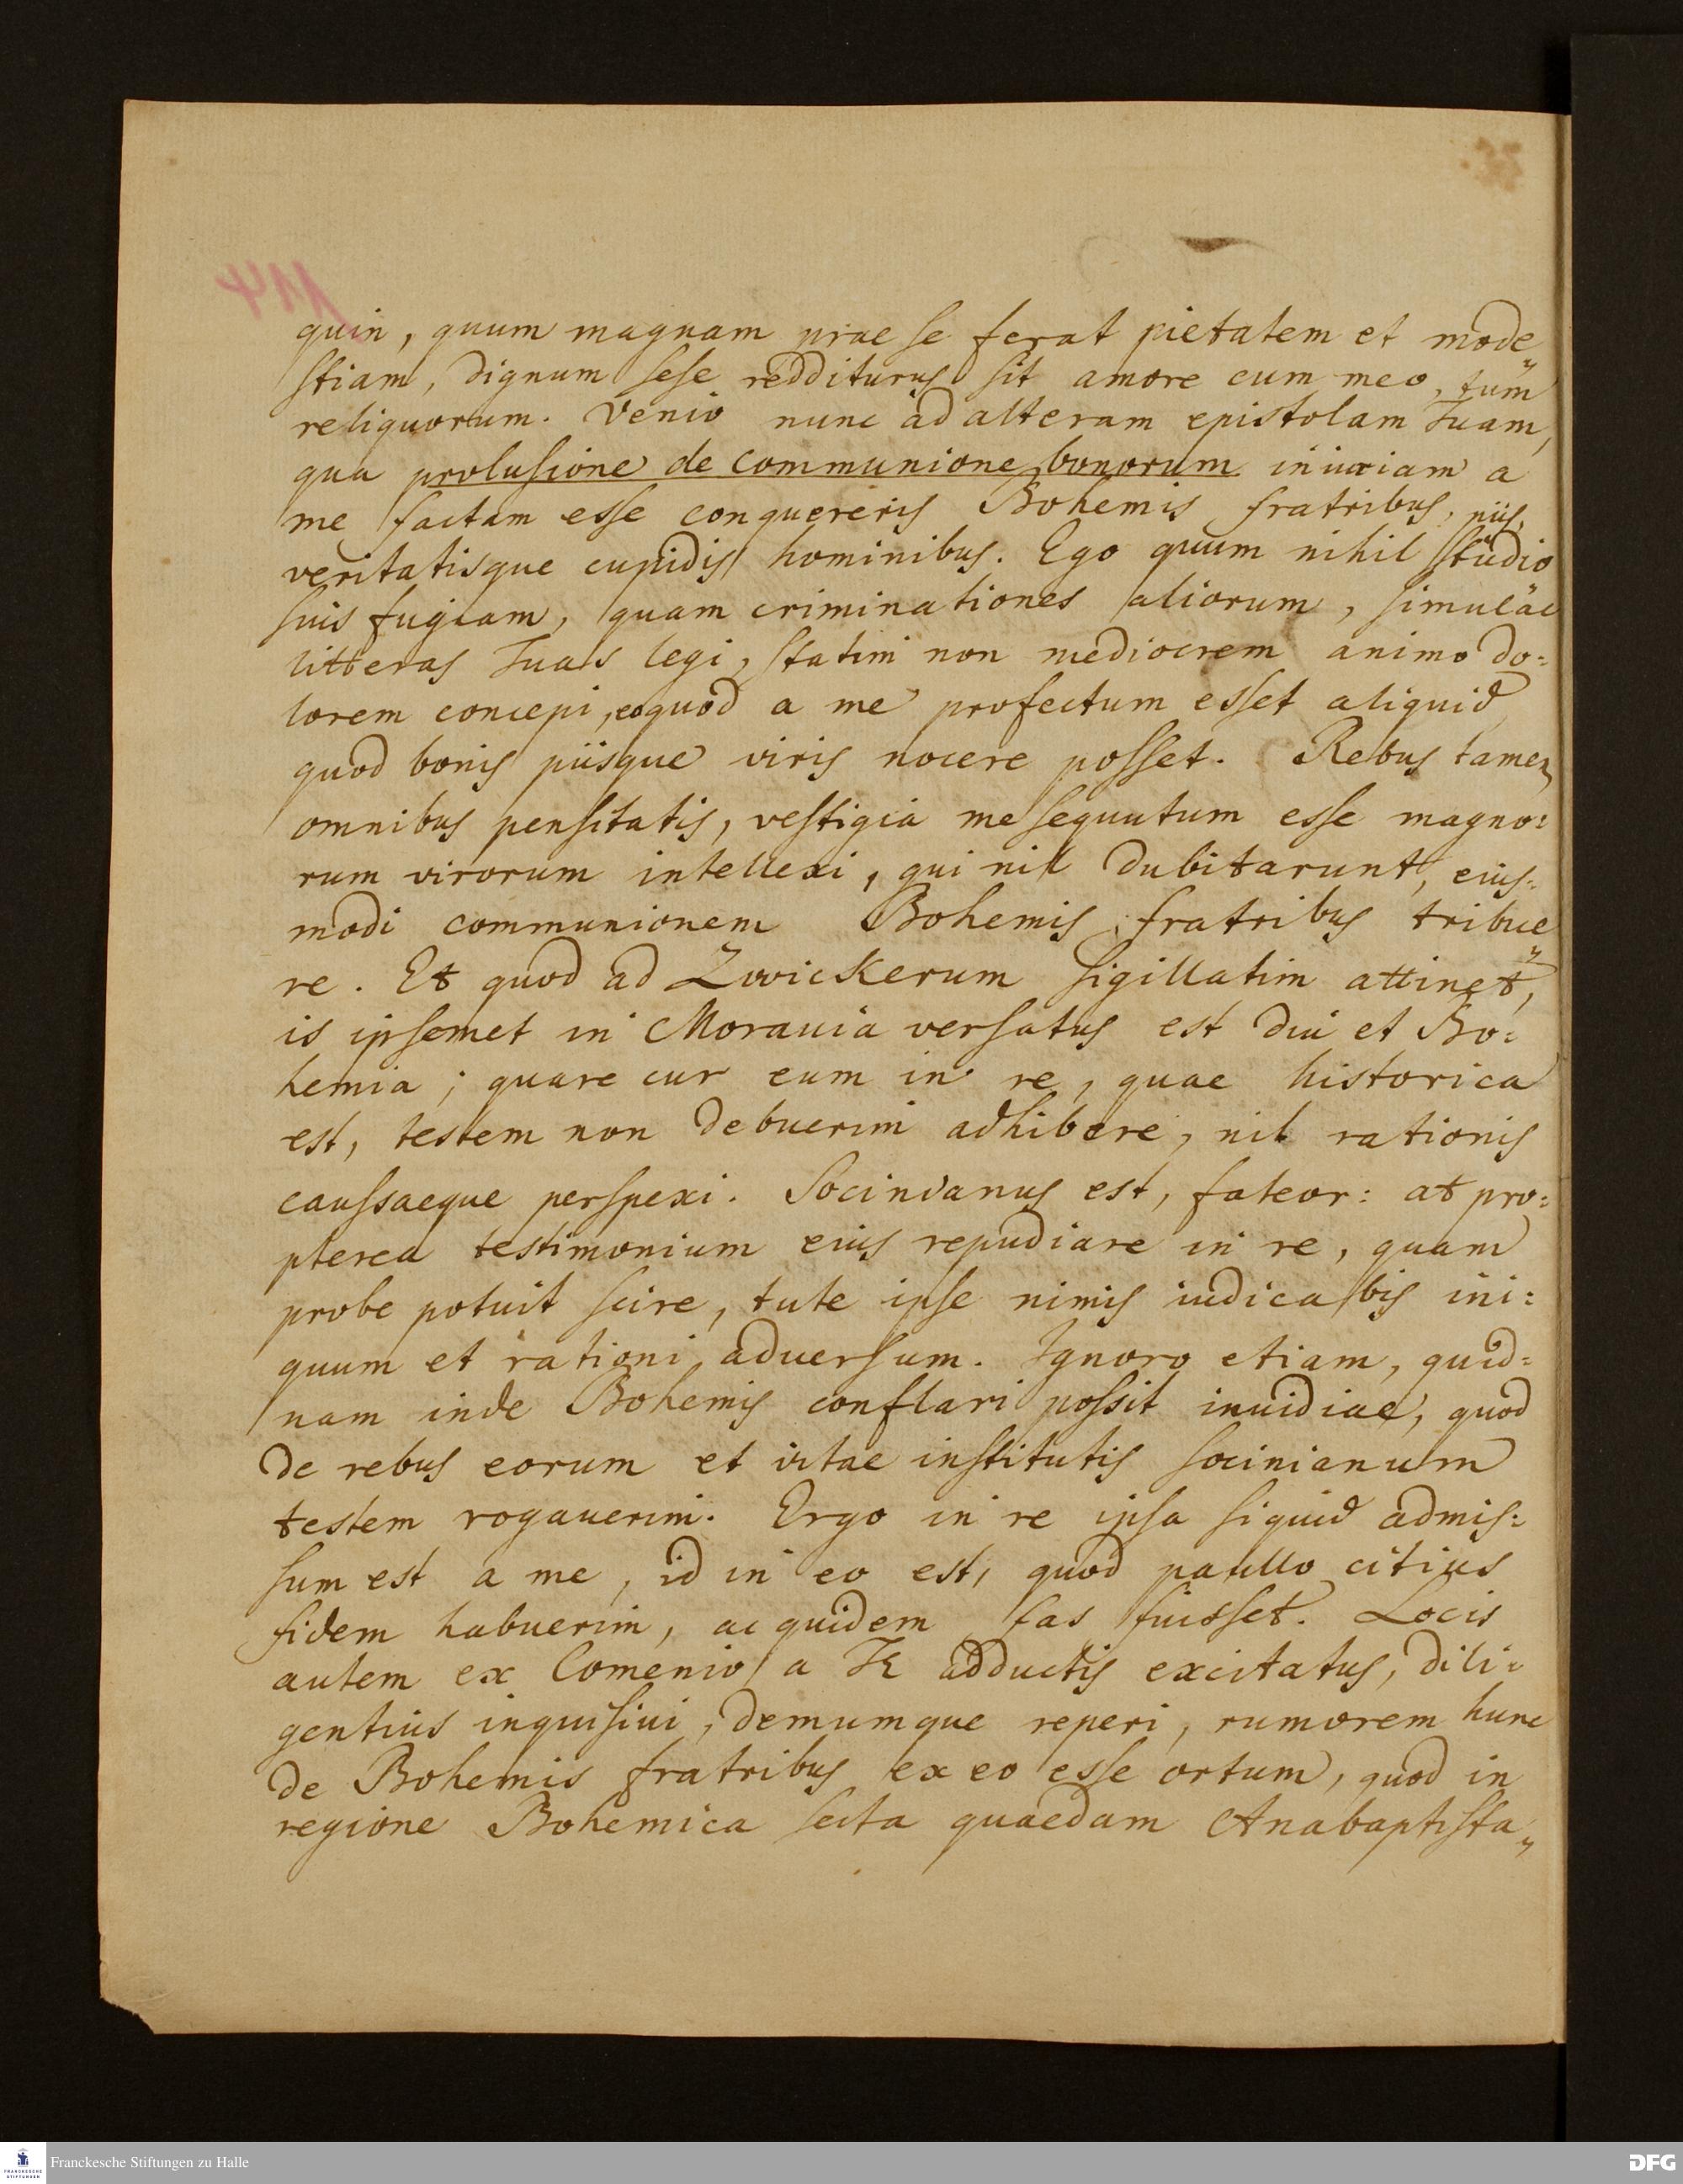 114
quin, quum magnam prae se ferat pietatem et mode„
stiam, dignum sese redditurus sit amore cum meo, tum
reliquorum. Venio nunc ad alteram epistolam Tuam,
qua prolusione de communione bonorum iniuriam a
me factam esse conquereris Bohemis fratribus, piis,
veritatisque cupidis hominibus. Ego quum nihil studio
sius fugiam, quam criminationes aliorum, simulac
litteras Tuas legi, statim non mediocrem animo do:
lorem concepi, eoquod a me profectum esset aliquid
quod bonis piisque viris nocere posset. Rebus tamen
omnibus pensitatis, vestigia me sequutum esse magno:
rum virorum intellexi, qui nil dubitarunt, eius:
modi communionem Bohemis fratribus tribue„
re. Et quod ad Zwickerum sigillatim attinet,
is ipsemet in Morauia versatus est diu et Bo:
hemia; quare cur eum in re, quae historica
est, testem non debuerim adhibere, nil rationis
caussaeque perspexi. Socinianus est, fateor: at pro:
pterea testimonium eius repudiare in re, quam
probe potuit scire, tute ipse nimis iudicabis ini:
quum et rationi aduersum. Ignoro etiam, quid:
nam inde Bohemis conflari possit inuidiae, quod
de rebus eorum et vitae institutis socinianum
testem rogauerim. Ergo in re ipsa siquid admis:
sum est a me, id in eo est, quod paullo citius
fidem habuerim, ac quidem fas fuisset. Locis
autem ex Comenio a Te adductis excitatus, dili:
gentius inquisiui, demumque reperi, rumorem hunc
de Bohemis fratribus ex eo esse ortum, quod in
regione Bohemica secta quaedam Anabaptista„
Franckesche Stiftungen zu Halle
FRANCKESCHE STIFTUNGEN
DFG